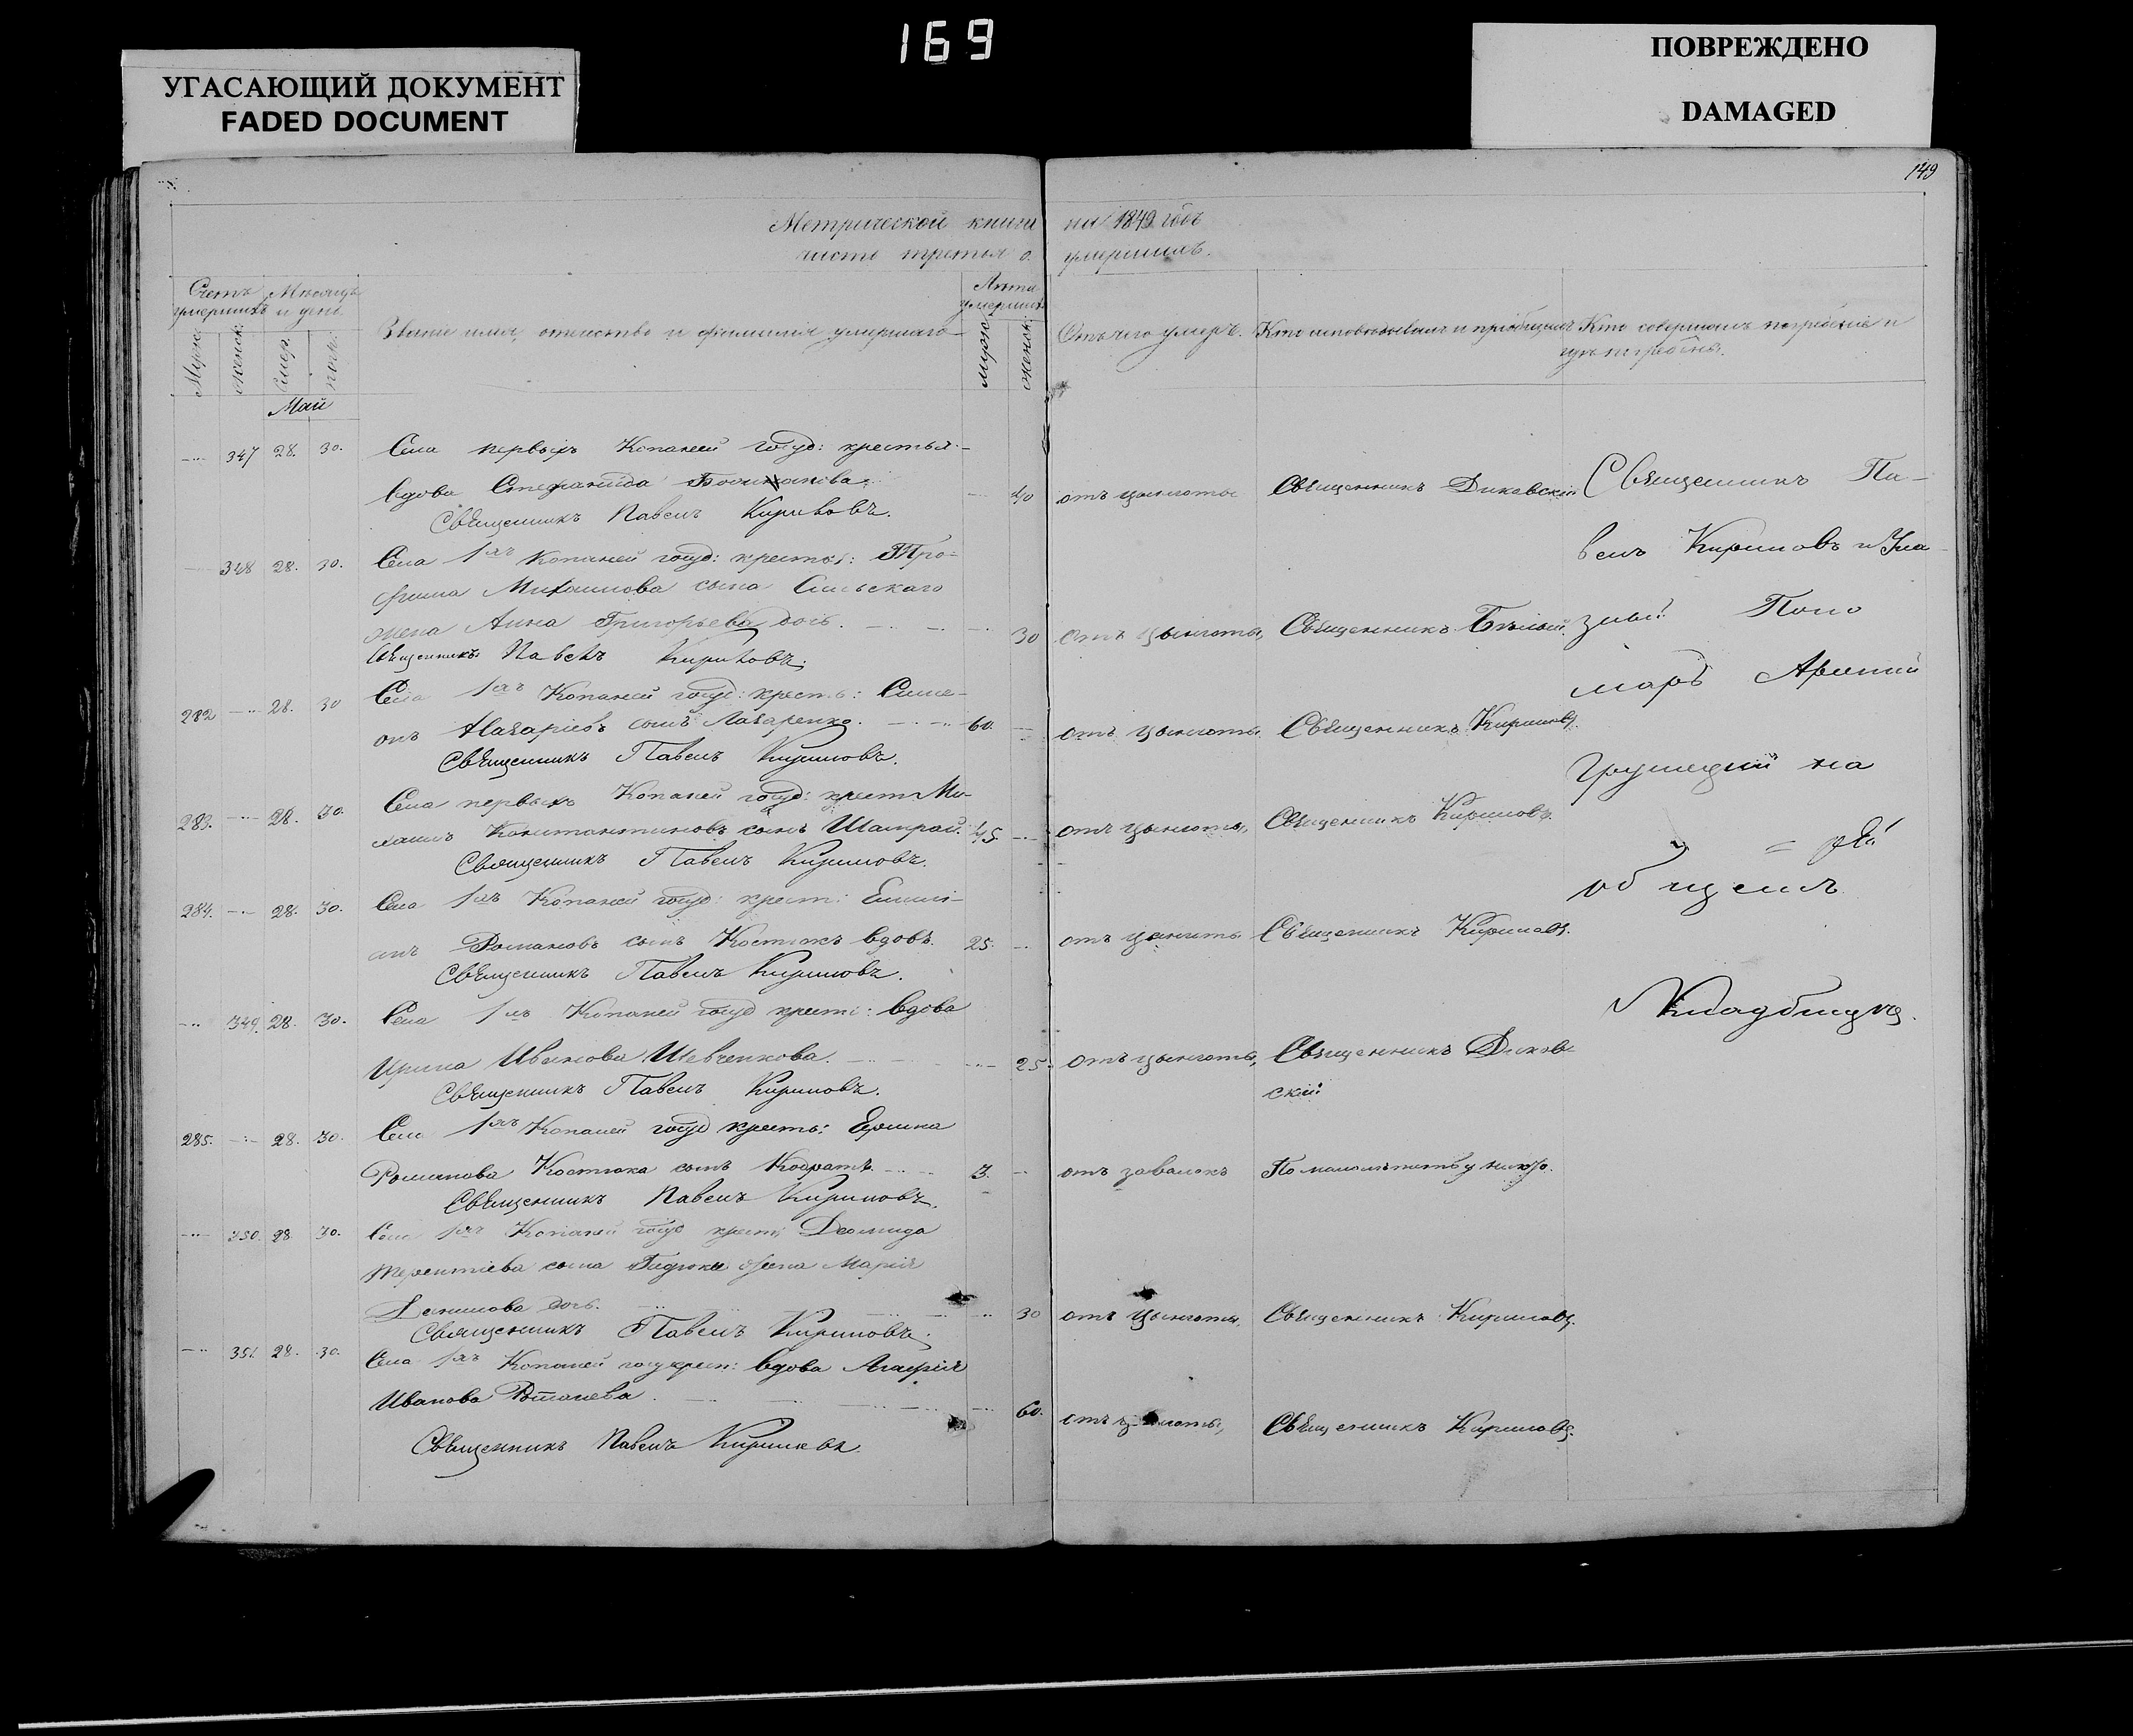 169
УГАСАЮЩИЙ ДОКУМЕНТ
FADED DOCUMENT
ПОВРЕЖДЕНО
DAMAGED
149
Метрической книги на 1849 годъ
часть третья о умершихъ.
Счетъ умершихъ
Мѣсяцъ и день
Званіе имя, отчество и фамилія умершаго
Лѣта умершихъ
Отъ чего умеръ.
Кто исповѣдывалъ и пріобщилъ
Кто совершалъ погребеніе и
гдѣ погребены.
Муж.
женск.
Смер.
погр.
муж.
женск.
Май
347 28. 30. Села первыхъ Копаней госуд: крестья-
вдова Степанида 40 отъ цынготы Священникъ Диковскій
Священникъ Павелъ Кириловъ.
348 28. 30. Села 1хъ Копаней госуд: крестья: Тро-
фима Михаилова сына Сильскаго
жена Анна Григорьева дочь. 30 отъ цынготы, Священникъ Бѣлый.
Священникъ Павелъ Кириловъ.
282 28. 30 Села 1хъ Копаней госуд: кресть: Симе-
онъ Назаріевъ сынъ Лазаренко. 60. отъ цынготы Священникъ Кириловъ.
Священникъ Павелъ Кириловъ.
283. 28. 30. Села первыхъ Копаней госуд: крест: Ми-
хаилъ Константиновъ сынъ Шамрай. 45. отъ цынготы, Священникъ Кириловъ.
Священникъ Павелъ Кириловъ.
284. 28. 30. Села 1хъ Копаней госуд: крест: Емилі-
анъ Романовъ сынъ Костюкъ вдовъ. 25. отъ цынготы Священникъ Кириловъ.
Священникъ Павелъ Кириловъ.
349. 28. 30. Села 1хъ Копаней госуд крест: вдова
Ирина Иванова Шевченкова. 25. отъ цынготы, Священникъ Диков-
скій
Священникъ Павелъ Кириловъ.
285. 28. 30. Села 1хъ Копаней госуд кресть:
Романова Костюка сынъ Кодратъ. 3. отъ завалокъ По малолѣтству
Священникъ Павелъ Кириловъ.
350. 28 30. Села 1хъ Копаней госуд крест: Деомида
Терентіева сына жена Марія
Данилова дочь. 30 отъ цынготы, Священникъ Кириловъ.
Священникъ Павелъ Кириловъ.
351. 28. 30. Села 1хъ Копаней госуд крест: вдова Агафія
Иванова 60. отъ цынготы, Священникъ Кириловъ.
Священникъ Павелъ Кириловъ.
Священникъ Па-
велъ Кириловъ и
Поно
марь
на
общемъ
Кладбищѣ.